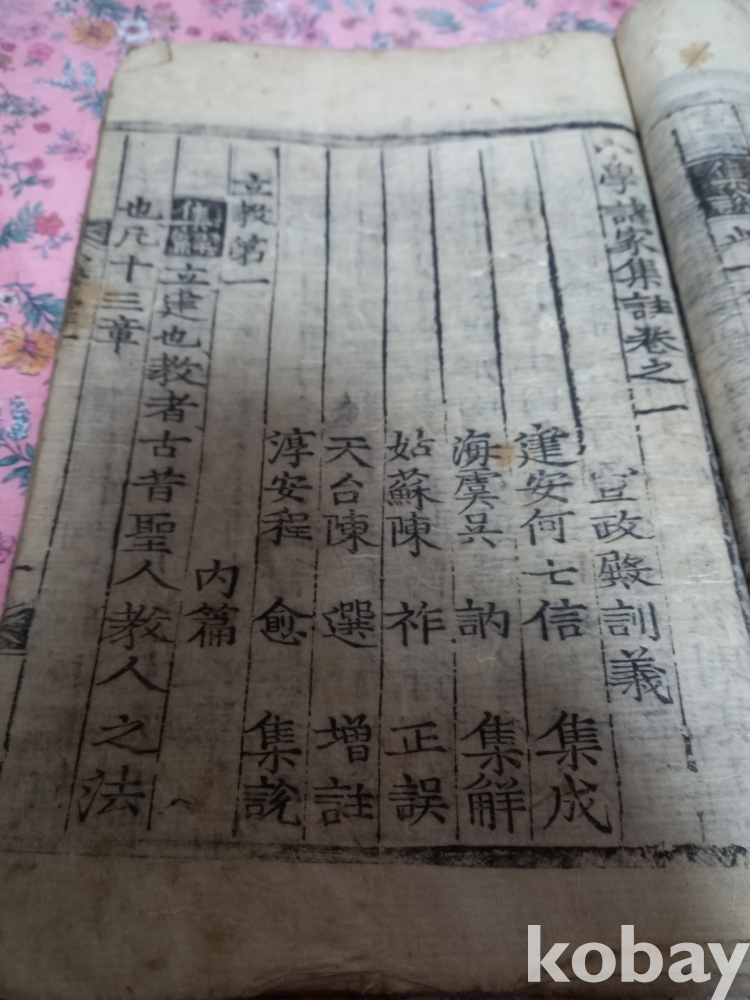 小學諸家集註卷之一
宣政殿訓義
建安何士信 集成
海虞吳 訥 集解
姑蘇陳 祚 正誤
天台陳 選 增註
淳安程 愈 集說
內篇
立敎第一
集解 立建也敎者古昔聖人敎人之法
也凡十三章
kobay